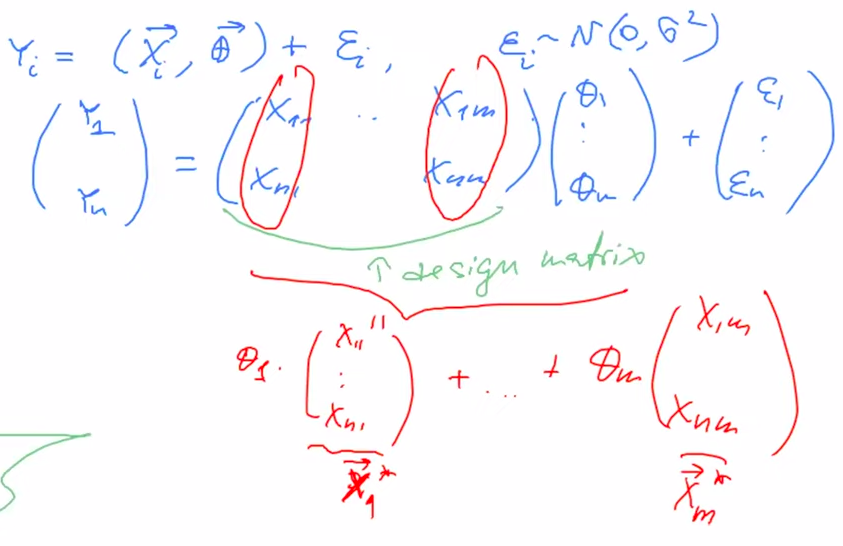 Y_i = (X⃗_i, θ⃗) + ε_i, ε_i ~ N(0, σ²)
(Y_1 Y_n) = (X_11 .. X_1m X_n1 X_nm) (θ_1 : θ_m) + (ε_1 : ε_n)
↑ design matrix
θ_1 · (X_11 : X_n1) + ... + θ_m (X_1m X_nm)
X⃗_1* X⃗_m*